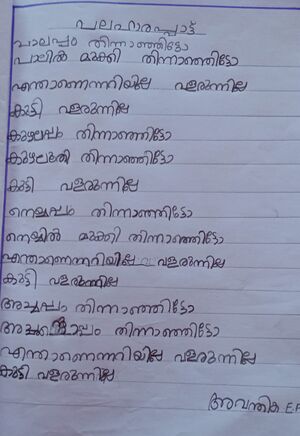 പലഹാരപ്പാട്ട്
പാലപ്പം തിന്നാഞ്ഞിട്ടോ
പാലിൽ മുക്കി തിന്നാഞ്ഞിട്ടോ
എന്താണെന്നറിയില്ല വളരുന്നില്ല
കുട്ടി വളരുന്നില്ല
കുഴലപ്പം തിന്നാഞ്ഞിട്ടോ
കുഴലൂതി തിന്നാഞ്ഞിട്ടോ
കുട്ടി വളരുന്നില്ല
നെയ്യപ്പം തിന്നാഞ്ഞിട്ടോ
നെയ്യിൽ മുക്കി തിന്നാഞ്ഞിട്ടോ
എന്താണെന്നറിയില്ല വളരുന്നില്ല
കുട്ടി വളരുന്നില്ല
അച്ചപ്പം തിന്നാഞ്ഞിട്ടോ
തിന്നാഞ്ഞിട്ടോ
എന്താണെന്നറിയില്ല വളരുന്നില്ല
കുട്ടി വളരുന്നില്ല
അവന്തിക E.P